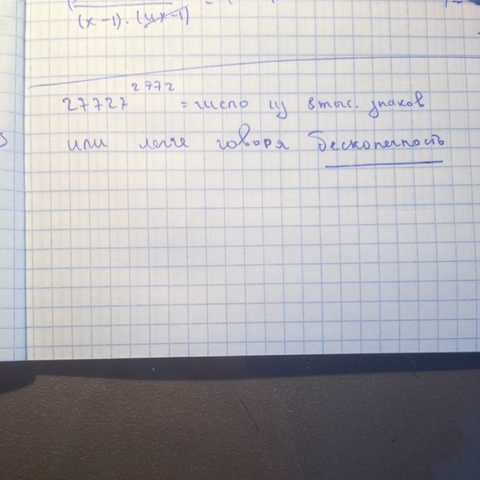 (x-1).(4x-1)
27727^2772 = число из 8 тыс. знаков
или легче говоря бесконечность